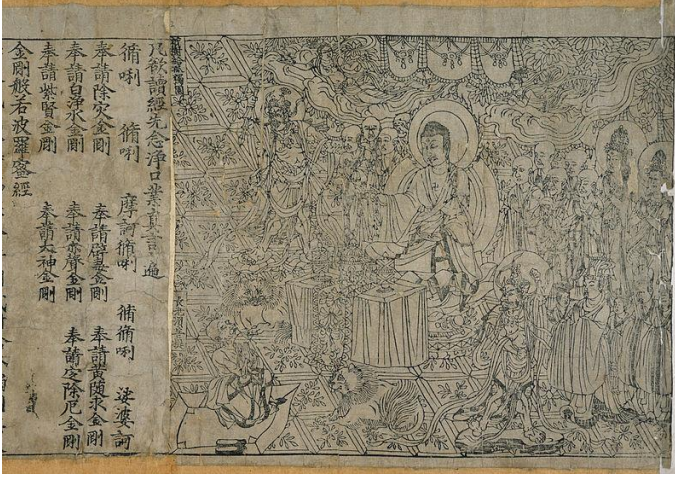 凡欲讀經先念淨口業真言一遍
脩唎 脩唎 摩訶脩唎 脩脩唎 娑婆訶
奉請除灾金剛 奉請辟毒金剛 奉請黃隨求金剛
奉請白淨水金剛 奉請赤聲金剛 奉請定除厄金剛
奉請紫賢金剛 奉請大神金剛
金剛般若波羅蜜經